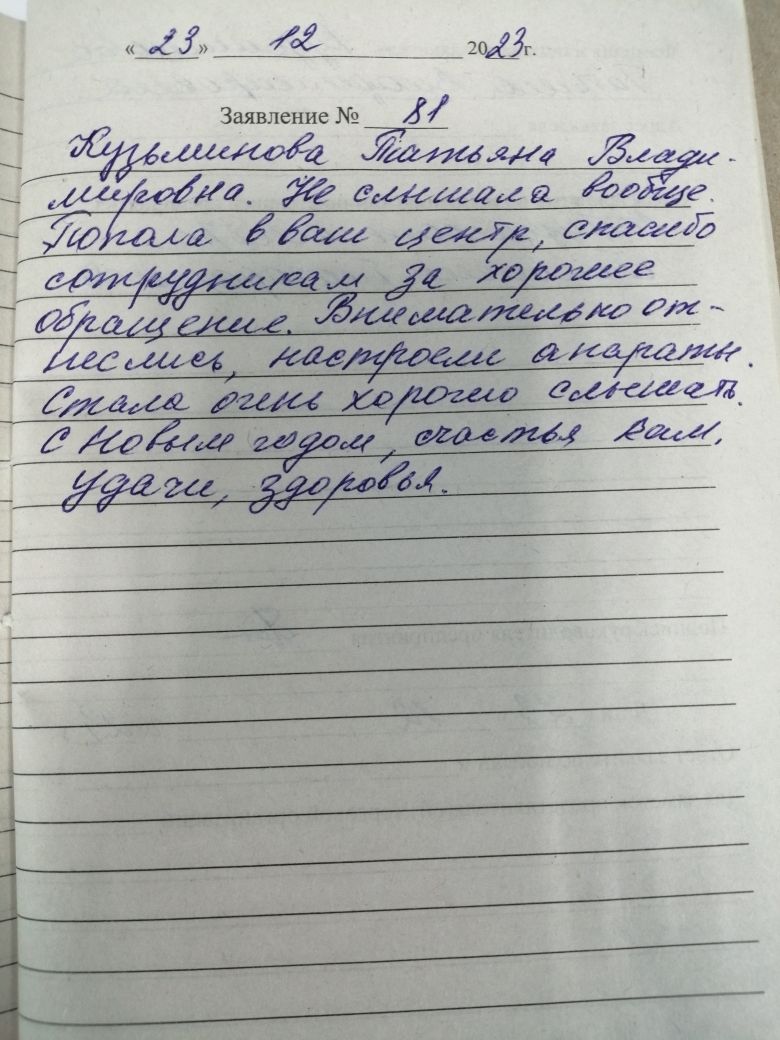 « 23 » 12 2023г.
Заявление № 81
Кузьминова Татьяна Влади-
мировна. Не слышала вообще.
Попола в ваш центр, спасибо
сотрудникам за хорошее
обращение. Внимательно от-
неслись, настроели апараты.
Стала очень хорошо слышать.
С Новым годом, счастья вам,
удачи, здоровья.